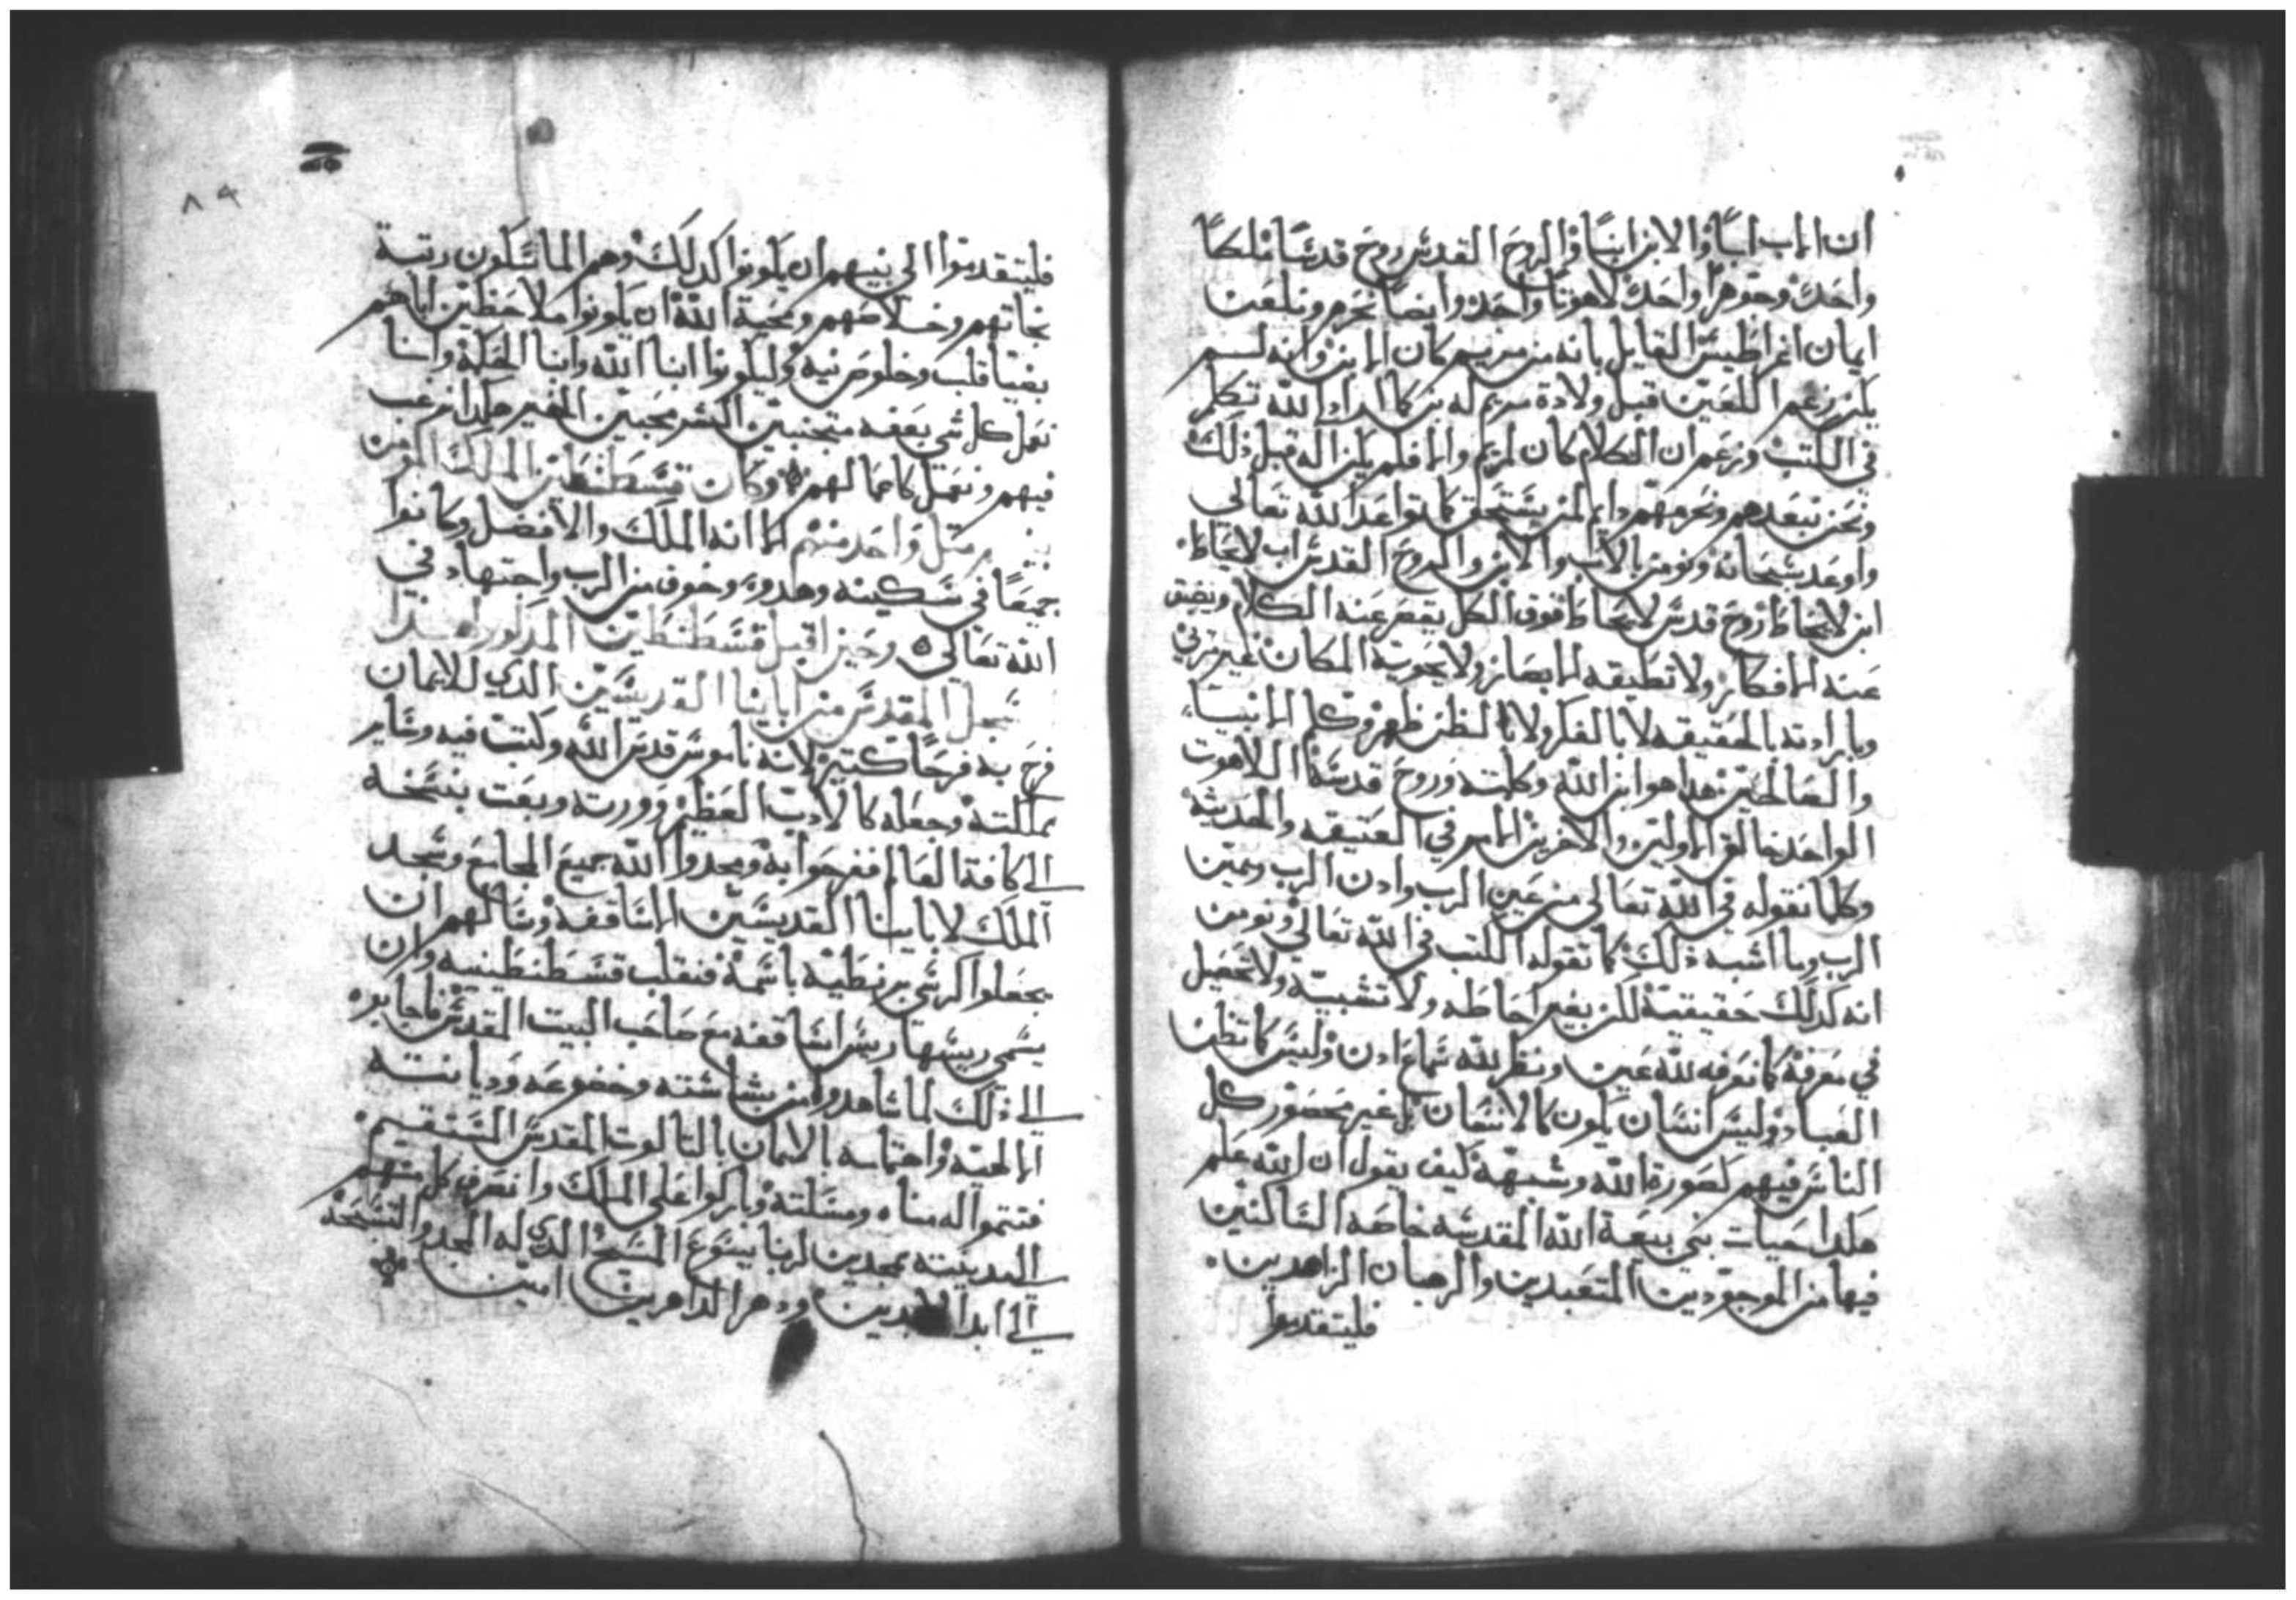 ان الاب ابًا والابن ابنًا والروح القدس روح قدسًا ملكًا
واحدًا وجوهرًا واحدًا لاهوتًا واحد وايضًا نحرم ونلعن
ايمان القايل بانه من مريم كان الابن وانه لسم
يكن زعم اللعين قبل ولادة مريم له بن كما اراد الله تكلم
في الكتب وزعم ان الكلام كان لمريم والا فلم يكن اله قبل ذلك
ونحن نبعدهم ونحرمهم دايم لمن يستحق كما تواعد الله تعالى
واوعد سبحانه ونومن بالاب والابن والروح القدس اب لا يحاط
ابن لا يحاط روح قدس لا يحاط فوق الكل يقصر عنه الكلام ويضيق
عنه الافكار ولا تطيقه الابصار ولا يحويه المكان غير مرئي
وبارادته بالحقيقه لا بالفكر ولا بالظن ظهر وكلم الانبيا
والصالحين هدا هو ابن الله وكلمته وروح قدسه اللاهوت
الواحد خالق الاولين والاخرين الامر في العتيقه والحديثه
وكلما نقوله في الله تعالى من عين الرب وادن الرب ويمين
الرب وما اشبه ذلك كما تقوله الكتب في الله تعالى ونومن
انه كدلك حقيقية لكن بغير احاطه ولا تشبيه ولا تحصيل
في معرفة كما نعرفه لله عين ونظر لله سماع ادن وليس كما تظن
العباد وليس انسان يكون كالانسان بل غير محصور كل
الناس فيهم كصورة الله وشبهه كيف يقول ان الله علم
هكدا حيات بني بيعة الله المقدسه خاصه الساكنين
فيها من الموجودين المتعبدين والرهبان الزاهدين
فليتقدموا
٨٩
فليتقدموا الى بنيهم ان يكونوا كدلك وهم الماسكون رتبة
نجاتهم وخلاصهم ومحبة الله ان يكونوا ملاحظين اباهم
بقلب وخلوص نيه وليكونوا ابنا الله وابنا الحكمة واننا
نعمل كل شي بعفه متجنبين الشر محبين الخير هكدا نرغب
فيهم ونعمل كاعمالهم وكان قسطنطين الملك المومن
مثل واحد منهم الا انه الملك والافضل وكانوا
جميعًا في سكينه وهدوء وخوف من الرب واجتهاد في
الله تعالى وحين اقبل قسطنطين المدكور هدا
المقدس من ابائنا القديسين الذي للايمان
فرح به فرحًا كثير لانه ناموس قدس الله وكتب فيه وساير
مملكته وجعله كالاديب العظيم وورته وبعث بنسخه
الى كافة العالم ففرحوا به ومجدوا الله جميع المجامع وسجد
الملك لابائنا القديسين الاساقفه وسالهم ان
يجعلوا كرسي بزنطيه باسمه فنقلب قسطنطينيه وان
يسمى ريسها ريس اساقفه مع صاحب البيت المقدس فاجابوه
الى ذلك لما شاهدوا من بشاشته وخضوعه وديانتـه
الالهيه واهتمامه بالايمان بالتالوت المقدس المستقيم
فتتموا له مناه ومسالته وباركوا على الملك وانصرف كل منهم
الى مدينته ممجدين لربنا يسوع المسيح الدي له المجد والتسبحة
الى ابد الابدين ودهر الداهرين امين